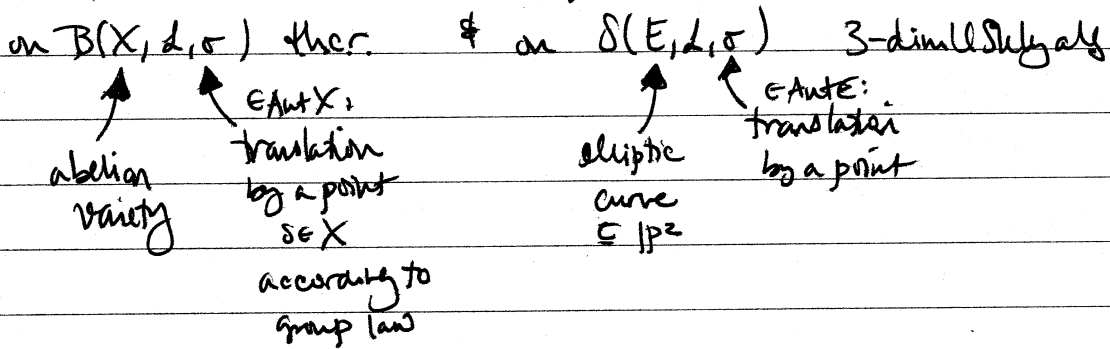 on B(X, L, σ) thcr. & on S(E, L, σ) 3-dim'l Skly algs
∈ Aut X: ∈ Aut E:
abelian variety
translation by a point s ∈ X according to group law
elliptic curve ⊆ ℙ²
translation by a point